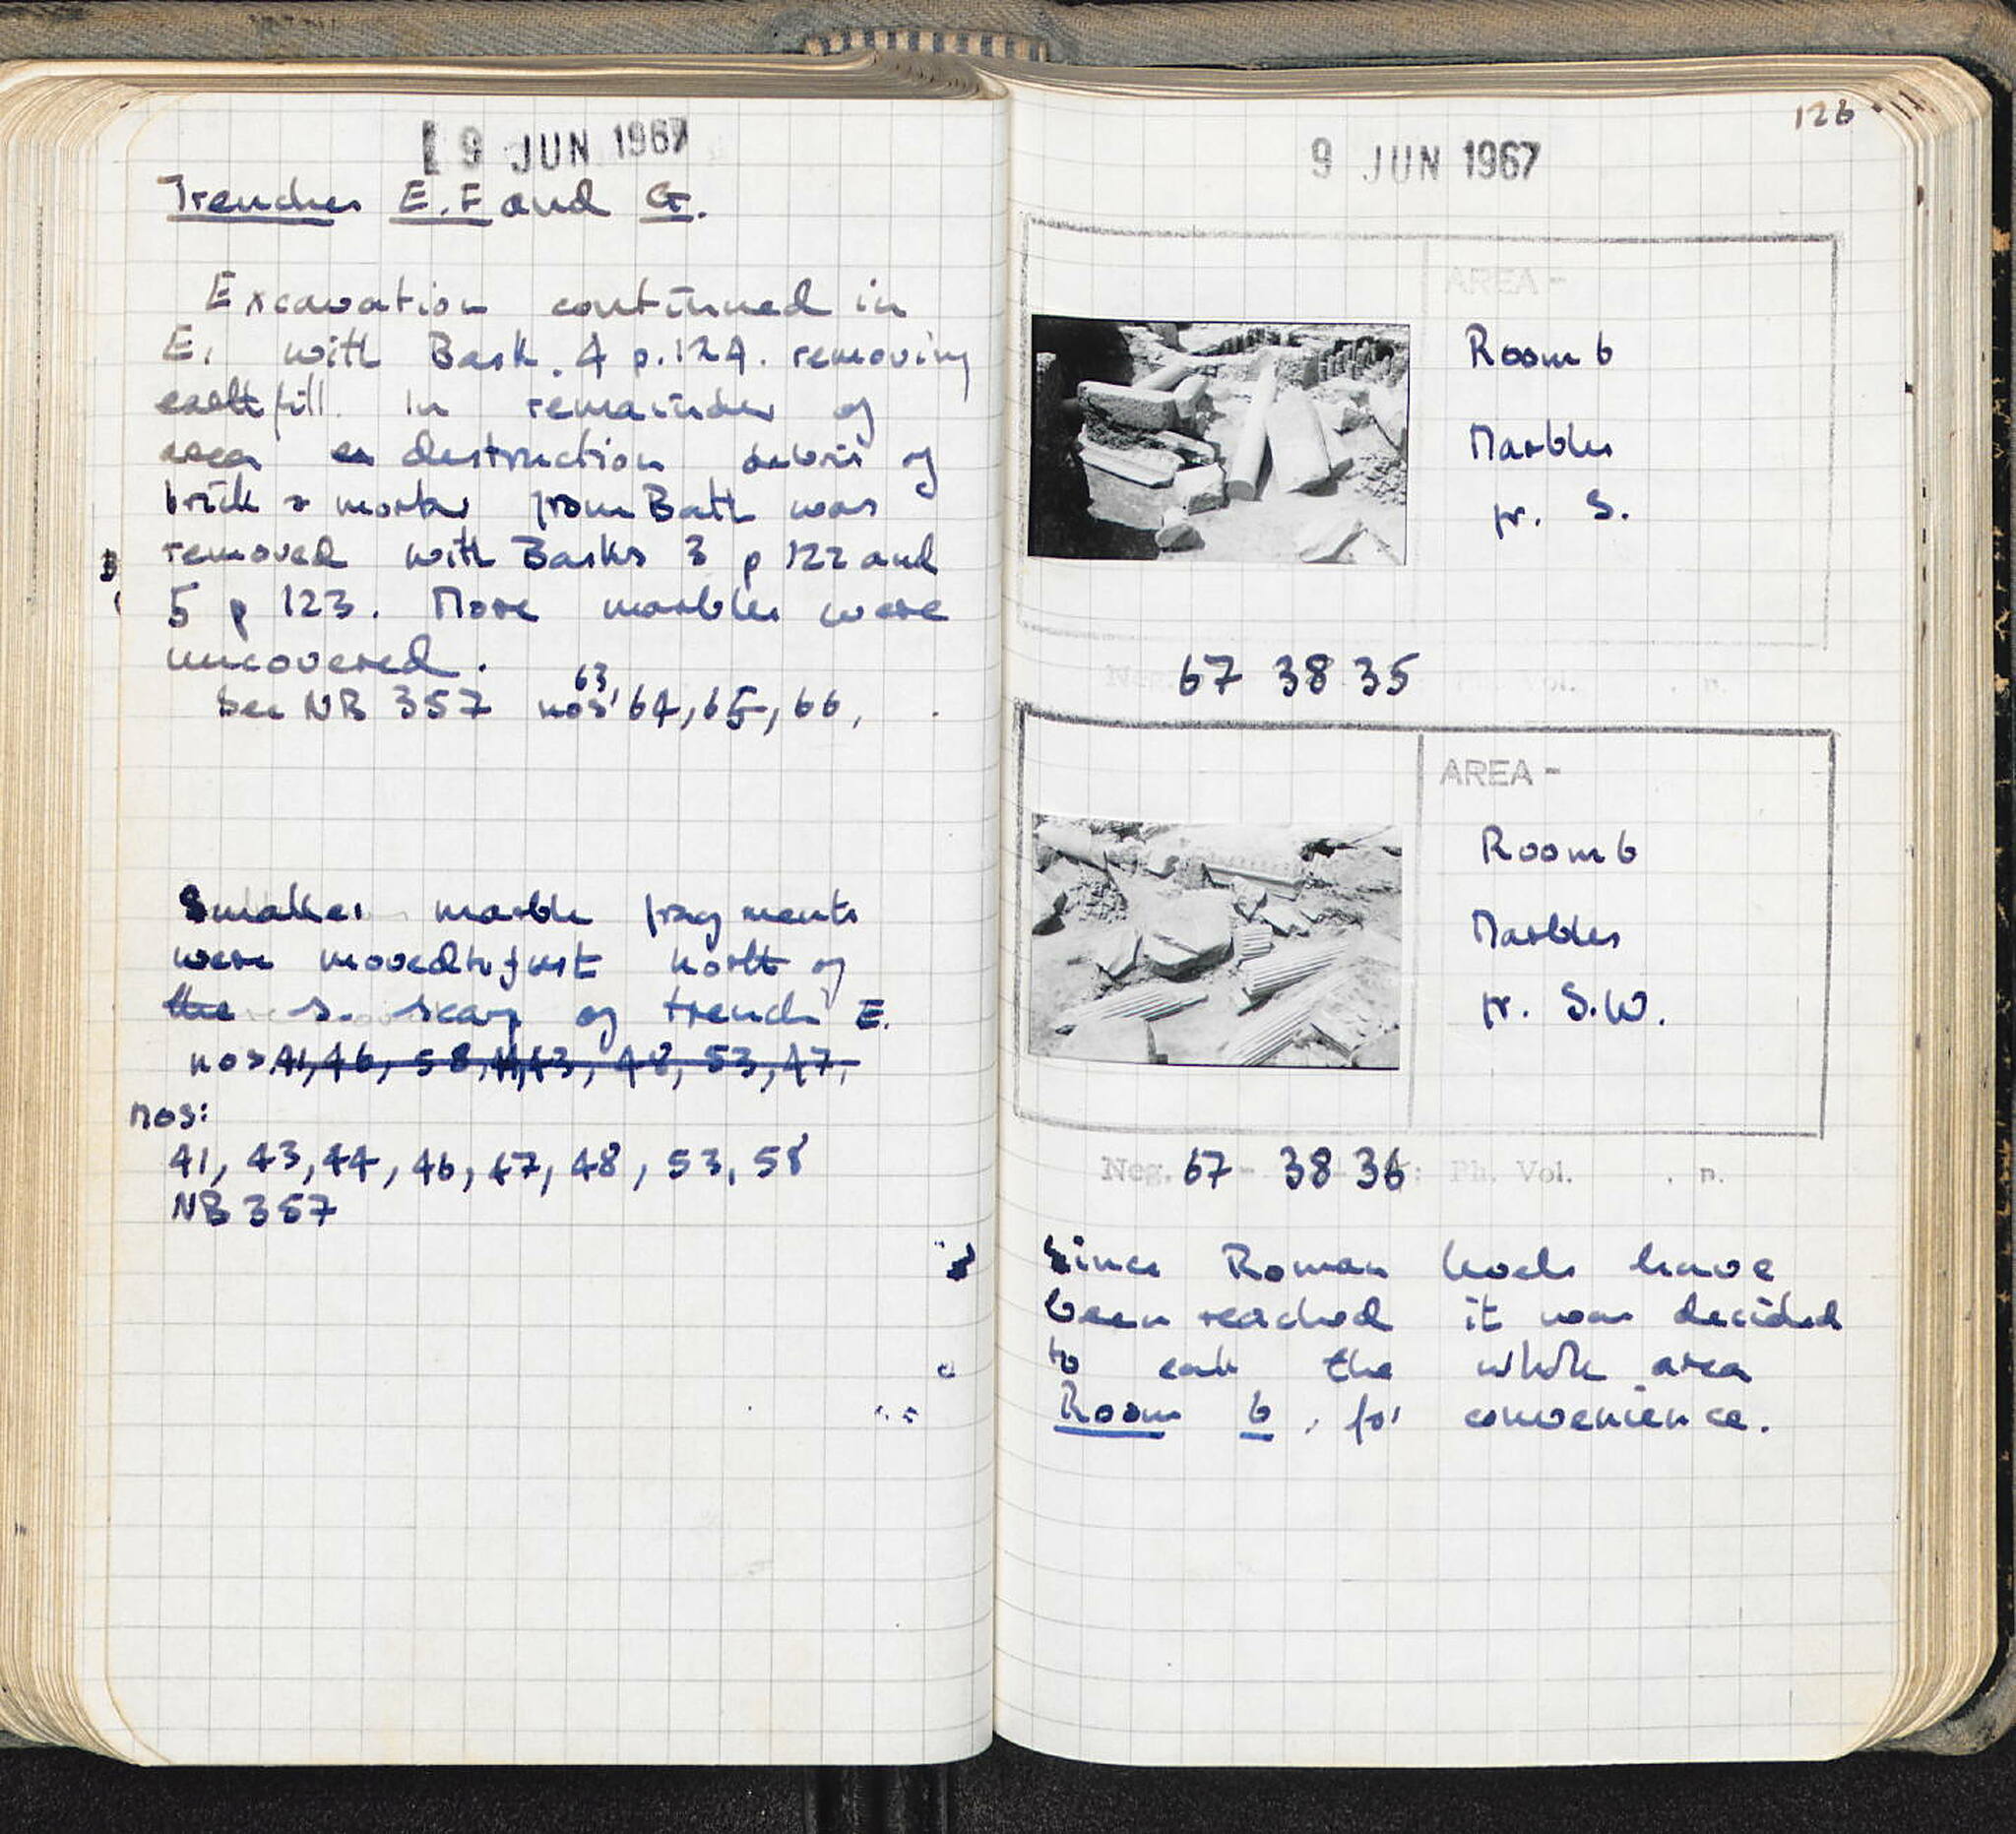 9 JUN 1967
Trenches E, F and G.
Excavation continued in
E, with Bask. 4 p. 124. removing
earth fill. In remainder of
area destruction debris of
brick & mortar from Bath was
removed with Basks 3 p 122 and
5 p 123. More marbles were
uncovered.
See NB 357 nos 63, 64, 65, 66,
Smaller marble fragments
were moved to just north of
the S. scarp of trench E.
nos. 41, 46, 58, 44, 43, 48, 53, 47,
nos:
41, 43, 44, 46, 47, 48, 53, 58
NB 357
126
9 JUN 1967
AREA -
Room 6
Marbles
fr. S.
Neg. 67 38 35 Ph. Vol. . p.
AREA -
Room 6
Marbles
fr. S.W.
Neg. 67 - 38 - 36 : Ph. Vol. . p.
Since Roman levels have
been reached it was decided
to call the whole area
Room 6, for convenience.